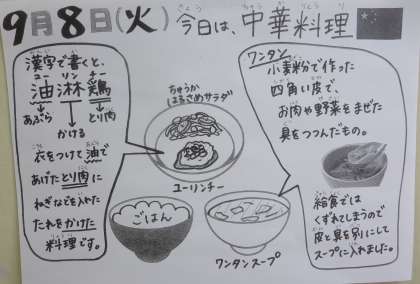 9月8日(火) 今日は、中華料理
きょう ちゅうかりょうり
漢字で書くと、
ユー リン チー
油淋鶏
あぶら かける とり肉
衣をつけて油で
あげたとり肉に
ねぎなどを入れた
たれをかけた
料理です。
ちゅうか
はるさめサラダ
ユーリンチー
ごはん
ワンタンスープ
ワンタン
小麦粉で作った
四角い皮で、
お肉や野菜をまぜた
具をつつんだもの。
給食では
くずれてしまうので
皮と具を別にして
スープに入れました。